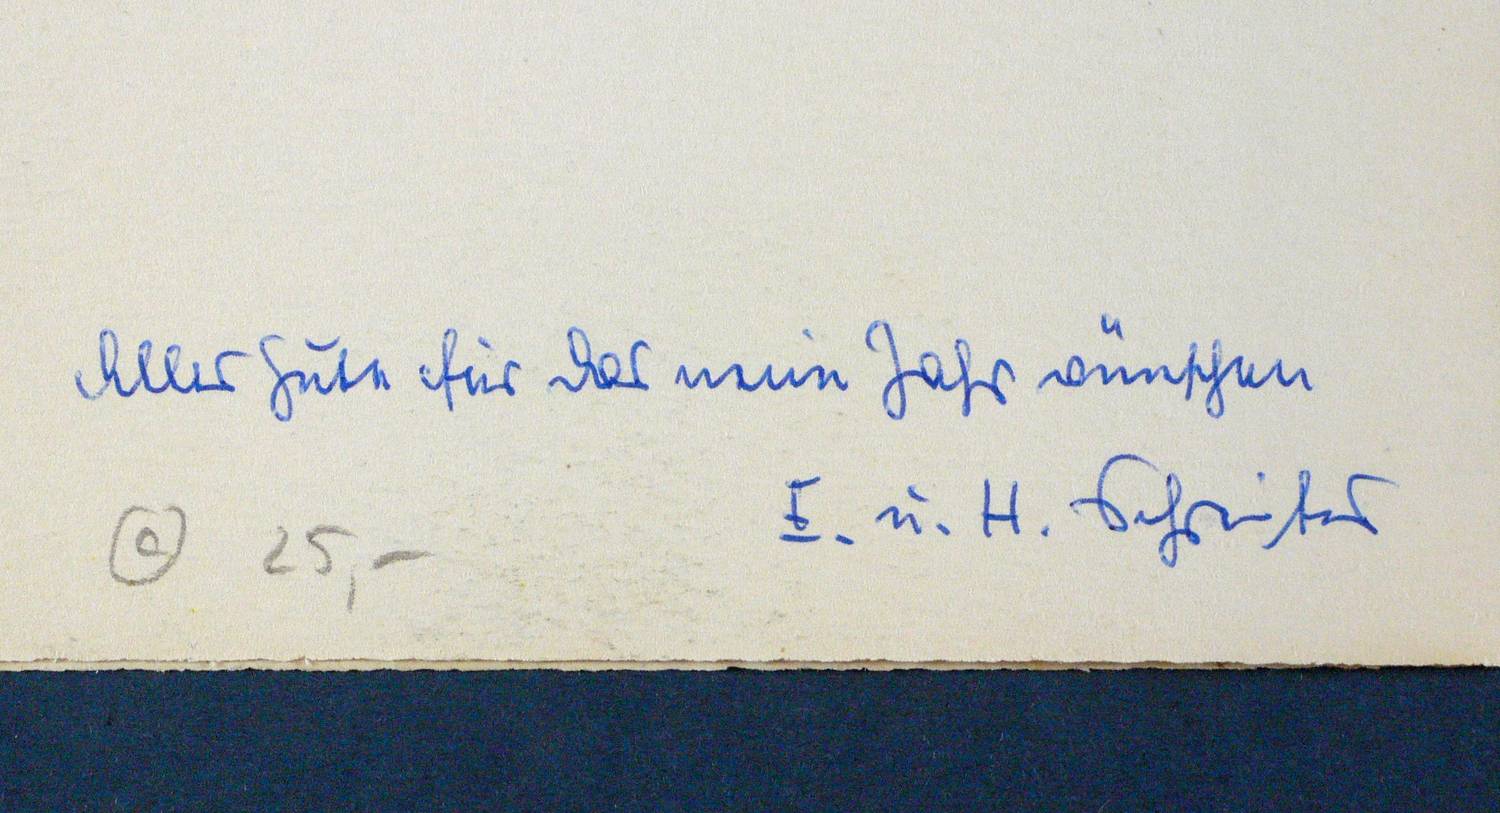 Alles Gute für das neue Jahr wünschen
E. u. H. Schreiter
@ 25,-